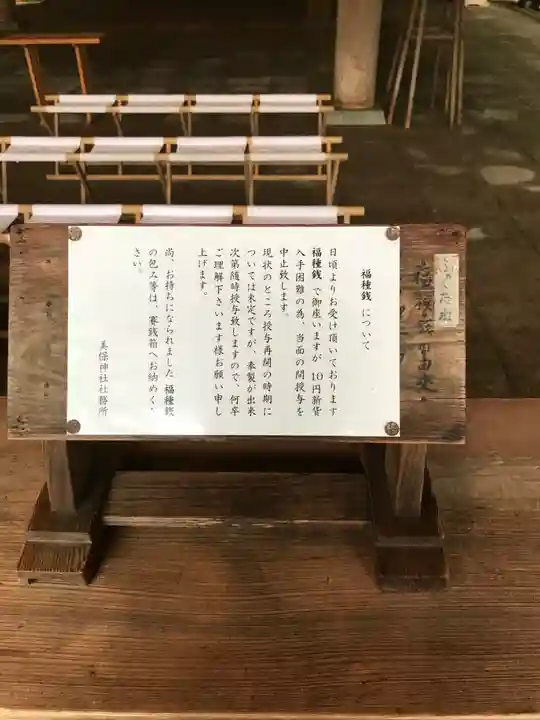 福種銭 について
日頃よりお受け頂いております
福種銭 で御座いますが 10円新貨
入手困難の為、当面の間授与を
中止致します。
現状のところ授与再開の時期に
ついては未定ですが、奉製が出来
次第随時授与致しますので、何卒
ご理解下さいます様お願い申し
上げます。
尚、お持ちになられました 福種銭
の包み等は、賽銭箱へお納めく
ださい。
美保神社社務所